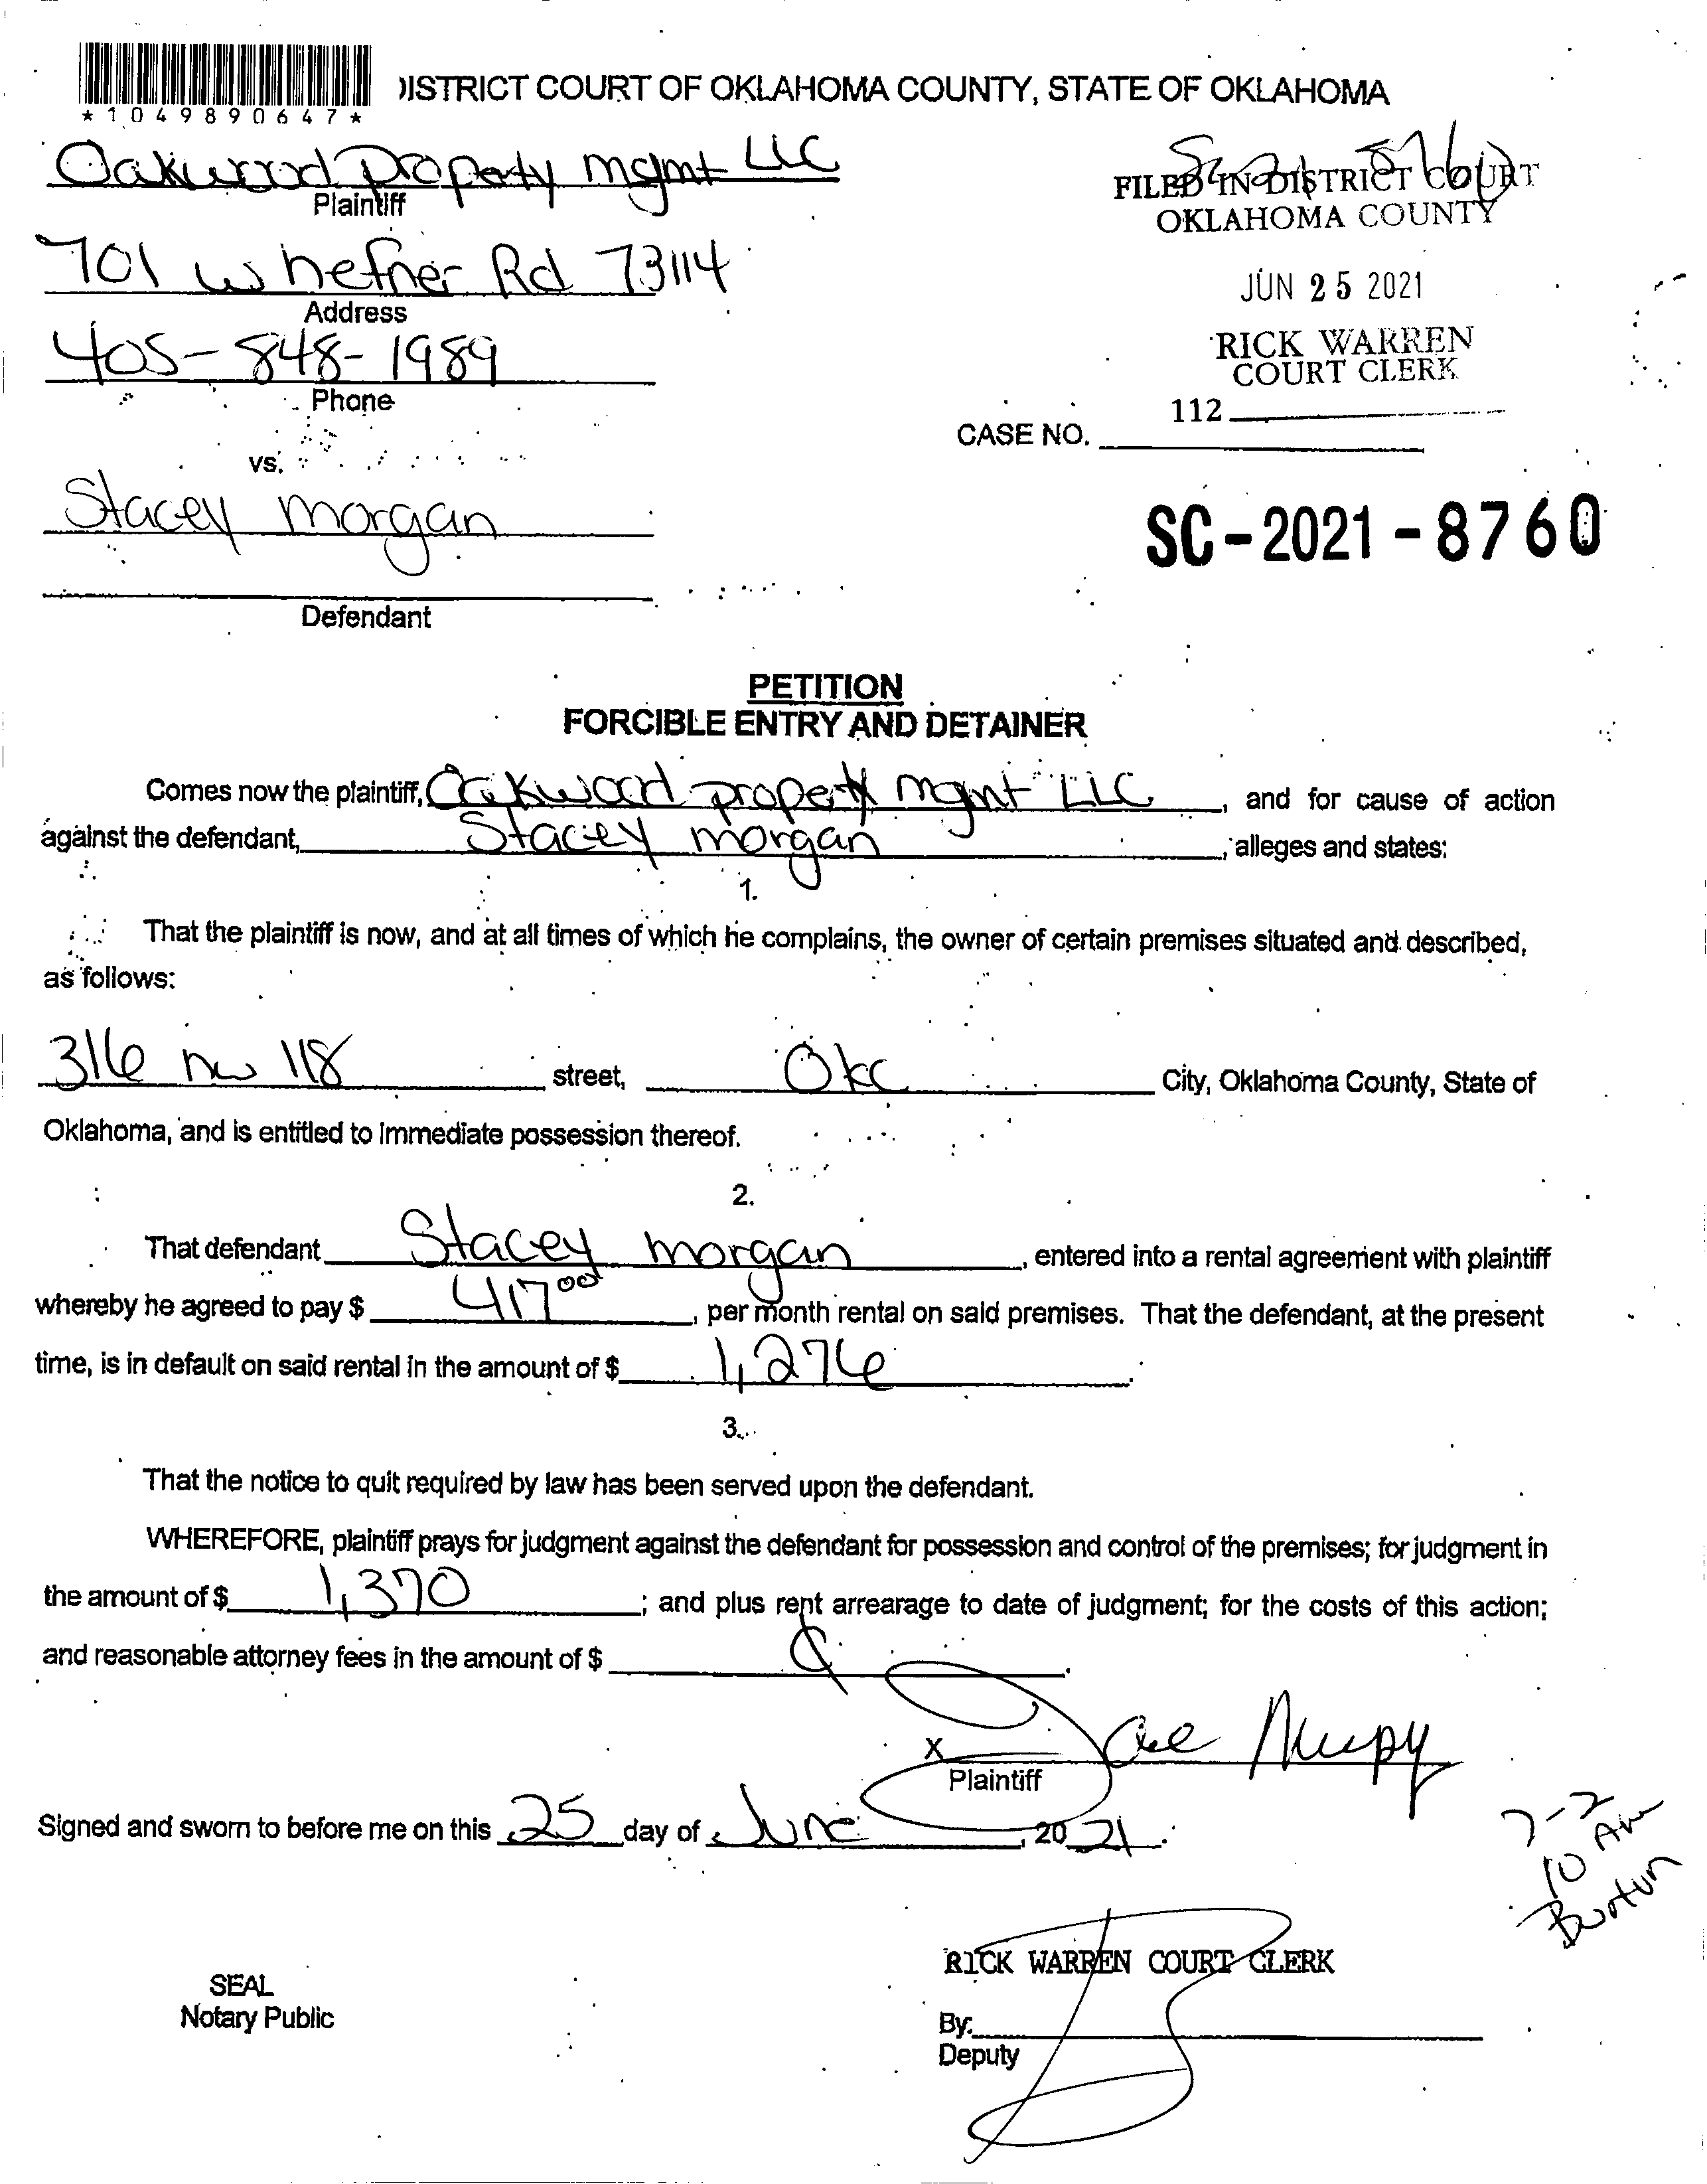 DISTRICT COURT OF OKLAHOMA COUNTY, STATE OF OKLAHOMA
*1049890647*
Oakwood Property mgmt LLC
Plaintiff
FILED IN DISTRICT COURT
OKLAHOMA COUNTY
701 W hefner Rd 73114
Address
JUN 25 2021
405-848-1989
Phone
RICK WARREN
COURT CLERK
112
CASE NO.
vs.
Stacey morgan
SC-2021-8760
Defendant
PETITION
FORCIBLE ENTRY AND DETAINER
Comes now the plaintiff, Oakwood property mgmt LLC, and for cause of action
against the defendant, Stacey morgan, alleges and states:
1.
That the plaintiff is now, and at all times of which he complains, the owner of certain premises situated and described,
as follows:
316 nw 118 street, Okc City, Oklahoma County, State of
Oklahoma, and is entitled to immediate possession thereof.
2.
That defendant Stacey morgan, entered into a rental agreement with plaintiff
whereby he agreed to pay $ 417.00, per month rental on said premises. That the defendant, at the present
time, is in default on said rental in the amount of $ 1,276.
3.
That the notice to quit required by law has been served upon the defendant.
WHEREFORE, plaintiff prays for judgment against the defendant for possession and control of the premises; for judgment in
the amount of $ 1,370; and plus rent arrearage to date of judgment; for the costs of this action;
and reasonable attorney fees in the amount of $
X
Plaintiff
Signed and sworn to before me on this 25 day of June, 2021.
7-2
10 Am
Burton
RICK WARREN COURT CLERK
SEAL
Notary Public
By:
Deputy